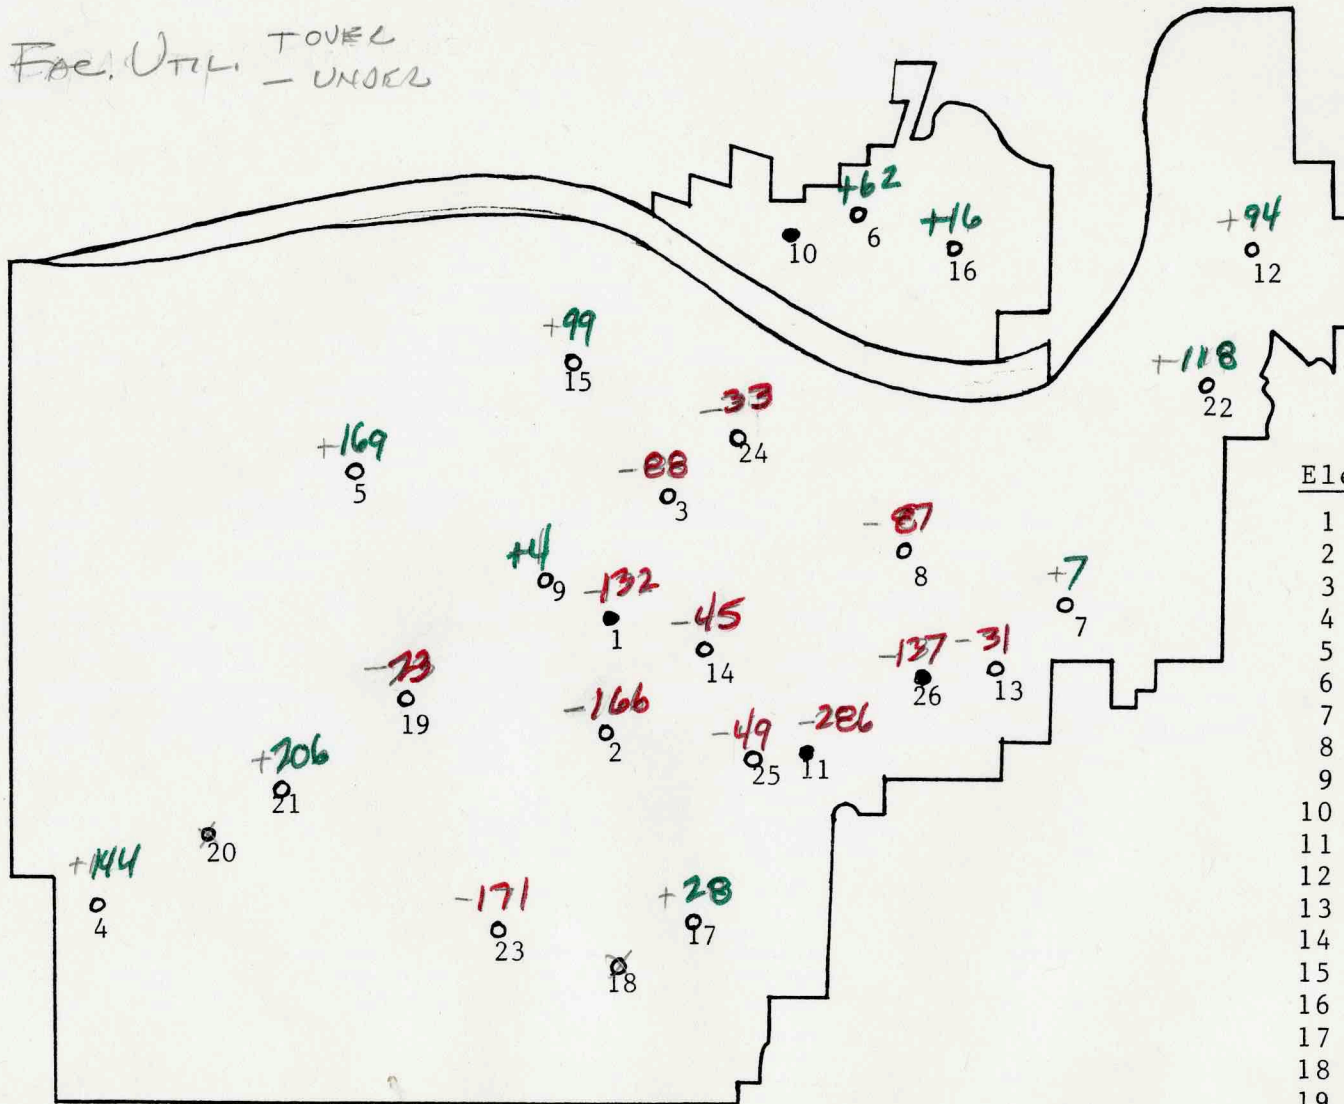 FAC. UTIL. + OVER
- UNDER
+62
6
10
+16
16
+94
12
+99
15
+118
22
-33
24
+169
5
-88
3
Ele
-87
8
+4
9
-132
1
+7
7
-45
14
-137
26
-31
13
19
-166
2
-49
25
-286
11
+206
21
20
+144
4
-171
23
+28
17
18
1
2
3
4
5
6
7
8
9
10
11
12
13
14
15
16
17
18
19